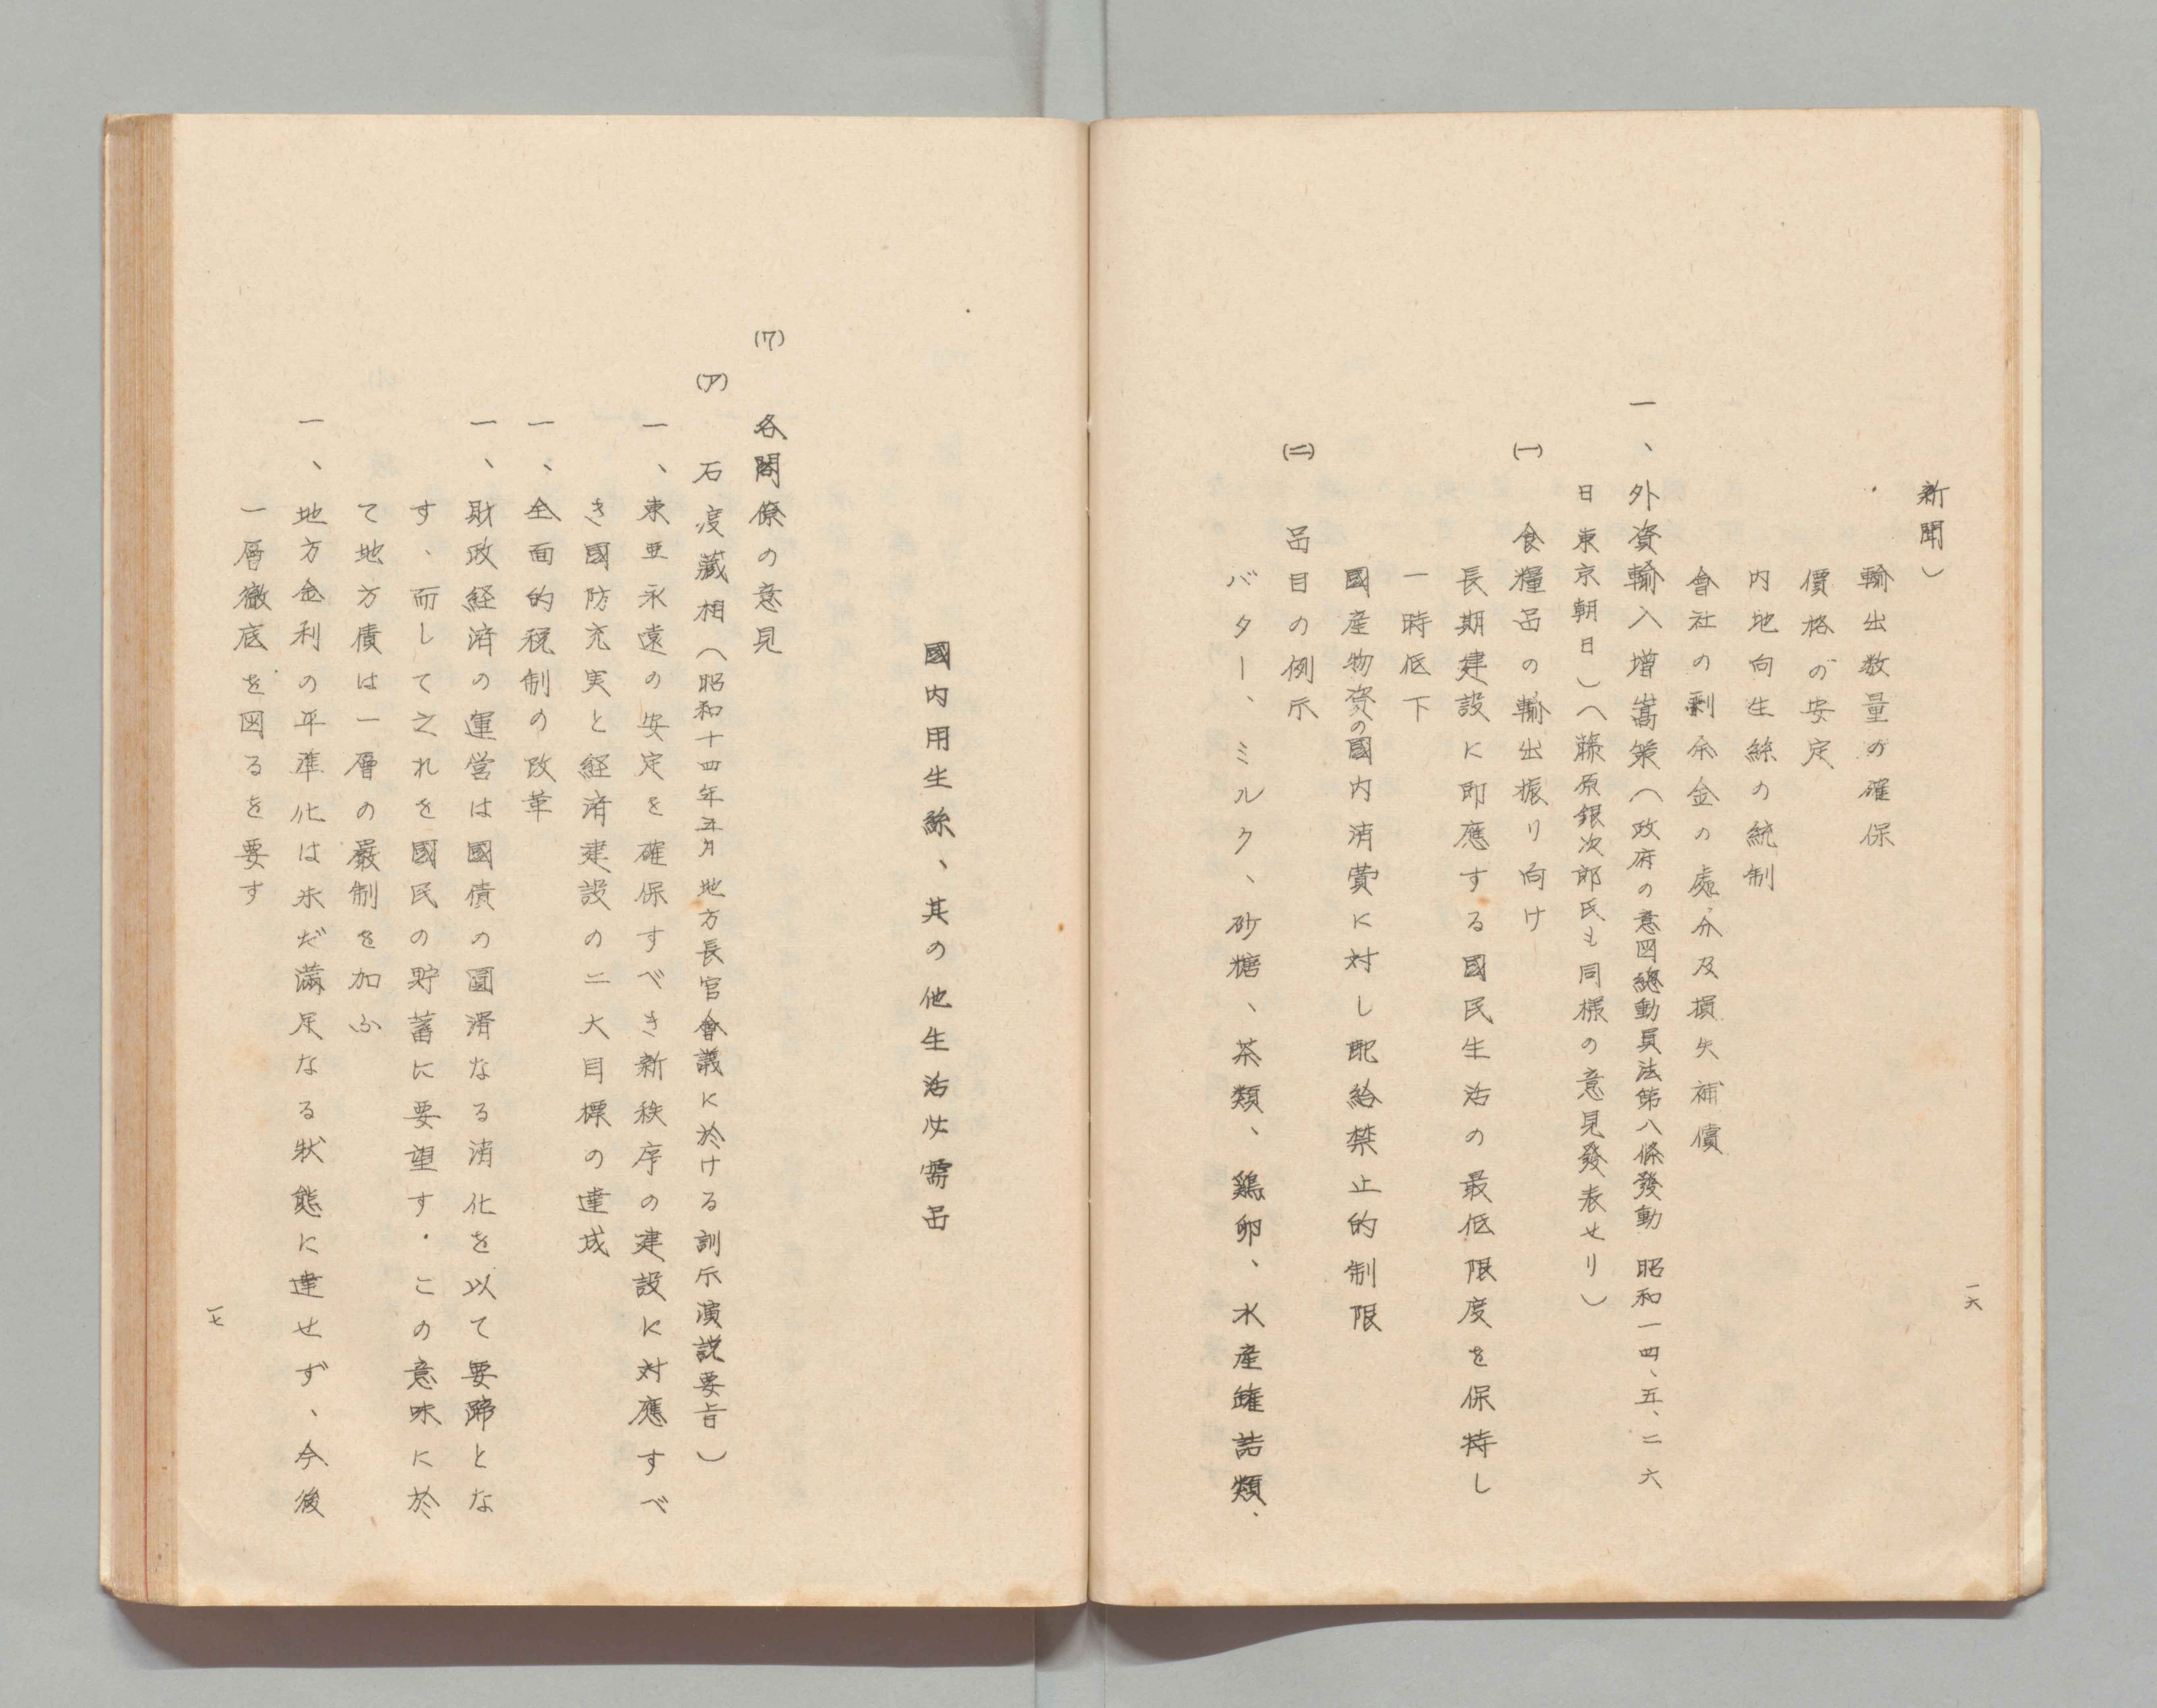 新聞)
輸出数量の確保
價格の安定
内地向生絲の統制
會社の剰余金の處分及損失補償
一、外資輸入増嵩策(政府の意図總動員法第八條發動 昭和一四、五、二六
日東京朝日)(藤原銀次郎氏も同様の意見發表せり)
(一) 食糧品の輸出振り向け
長期建設に即應する國民生活の最低限度を保持し
一時低下
國産物資の國内消費に対し配給禁止的制限
(二) 品目の例示
バター、ミルク、砂糖、茶類、鶏卵、水産罐詰類、
一六
國内用生絲、其の他生活必需品
(7) 各閣僚の意見
(ア) 石渡藏相(昭和十四年五月 地方長官會議に於ける訓示演説要旨)
一、東亜永遠の安定を確保すべき新秩序の建設に対應すべ
き國防充実と経済建設の二大目標の達成
一、全面的税制の改革
一、財政経済の運営は國債の圓滑なる消化を以て要諦とな
す、而して之れを國民の貯蓄に要望す・この意味に於
て地方債は一層の嚴制を加ふ
一、地方金利の平準化は未だ滿足なる狀態に達せず、今後
一層徹底を図るを要す
一七